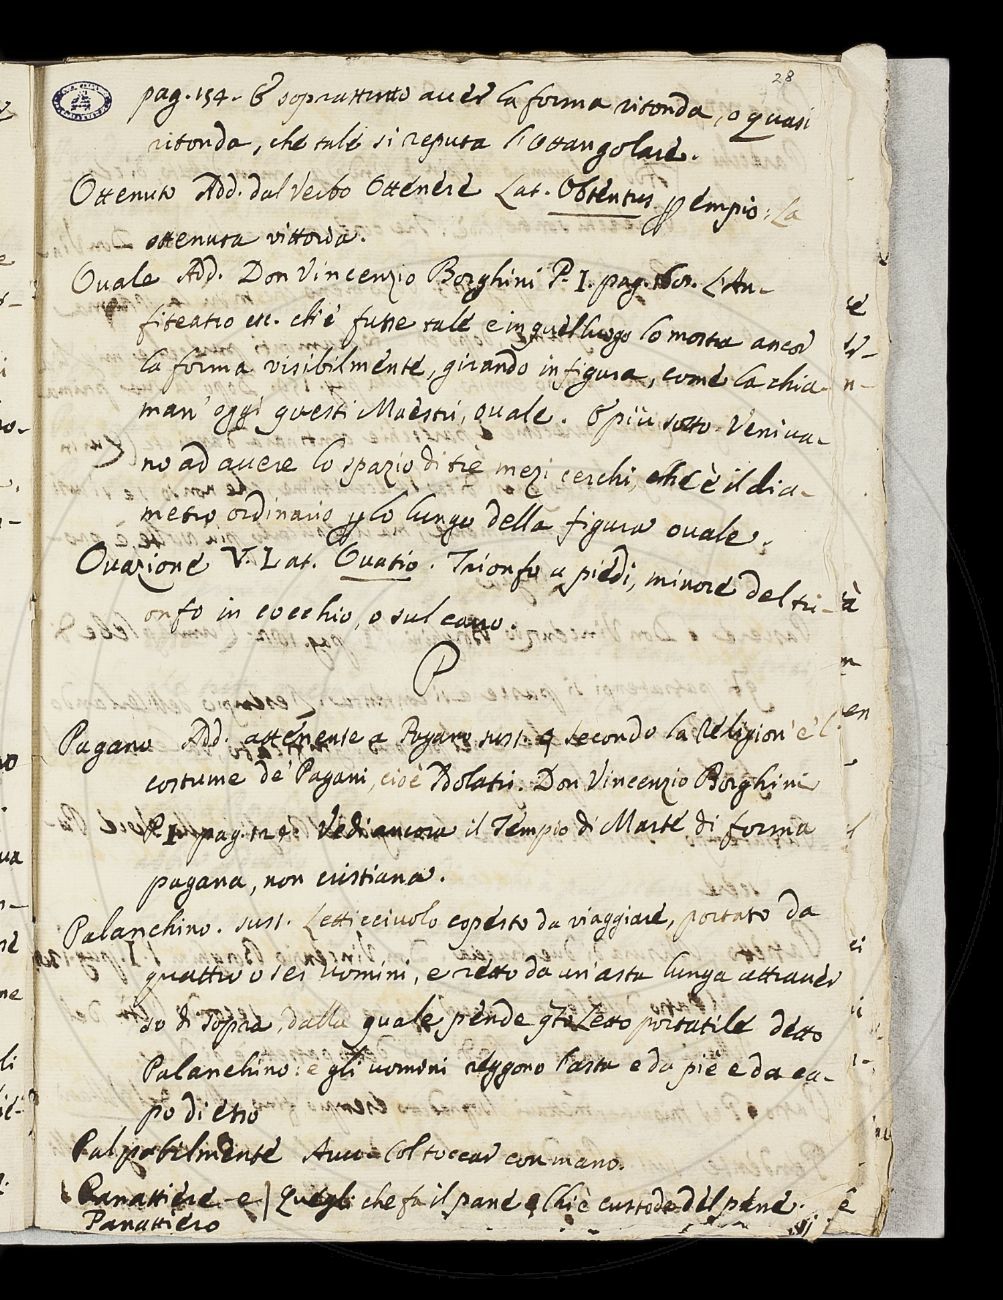 28
pag. 154. E soprattutto aver la forma ritonda, o quasi
ritonda, che tale si reputa l'Ottangolare.
Ottenuto Add. dal Verbo Ottenere Lat. Obtentus p esempio: La
ottenuta vittoria.
Ovale Add. Don Vincenzio Borghini P. I. pag. L'An-
fiteatro etc. ch'e' fusse tale e in quel luogo lo mostra ancor
la forma visibilmente, girando in figura, come la chia-
man' oggi questi Maestri, ovale. E più sotto. Veniva-
no ad avere lo spazio di tre mezi cerchi, che è il dia-
metro ordinario p lo lungo della figura ovale.
Ovazione V. Lat. Ovatio. Trionfo a piedi, minore del tri-
onfo in cocchio, o sul carro.
P
Pagano Add. attenente a Pagano sust. e secondo la Religion' e 'l
costume de' Pagani, cioè Idolatri. Don Vincenzio Borghini
P. I. pag. 124. Vedi ancora il Tempio di Marte di forma
pagana, non cristiana.
Palanchino. sust. Letticciuolo coperto da viaggiare, portato da
quattro o sei uomini, e retto da un'asta lunga attraver
so di sopra, dalla quale pende Letto portatile detto
Palanchino: e gli uomini reggono l'asta e da pie e da ca-
po di esso
Palpabilmente Avv. Col toccar con mano.
Panattiere - e } Quegli che fa il pane e chi è custode del pane.
Panattiero